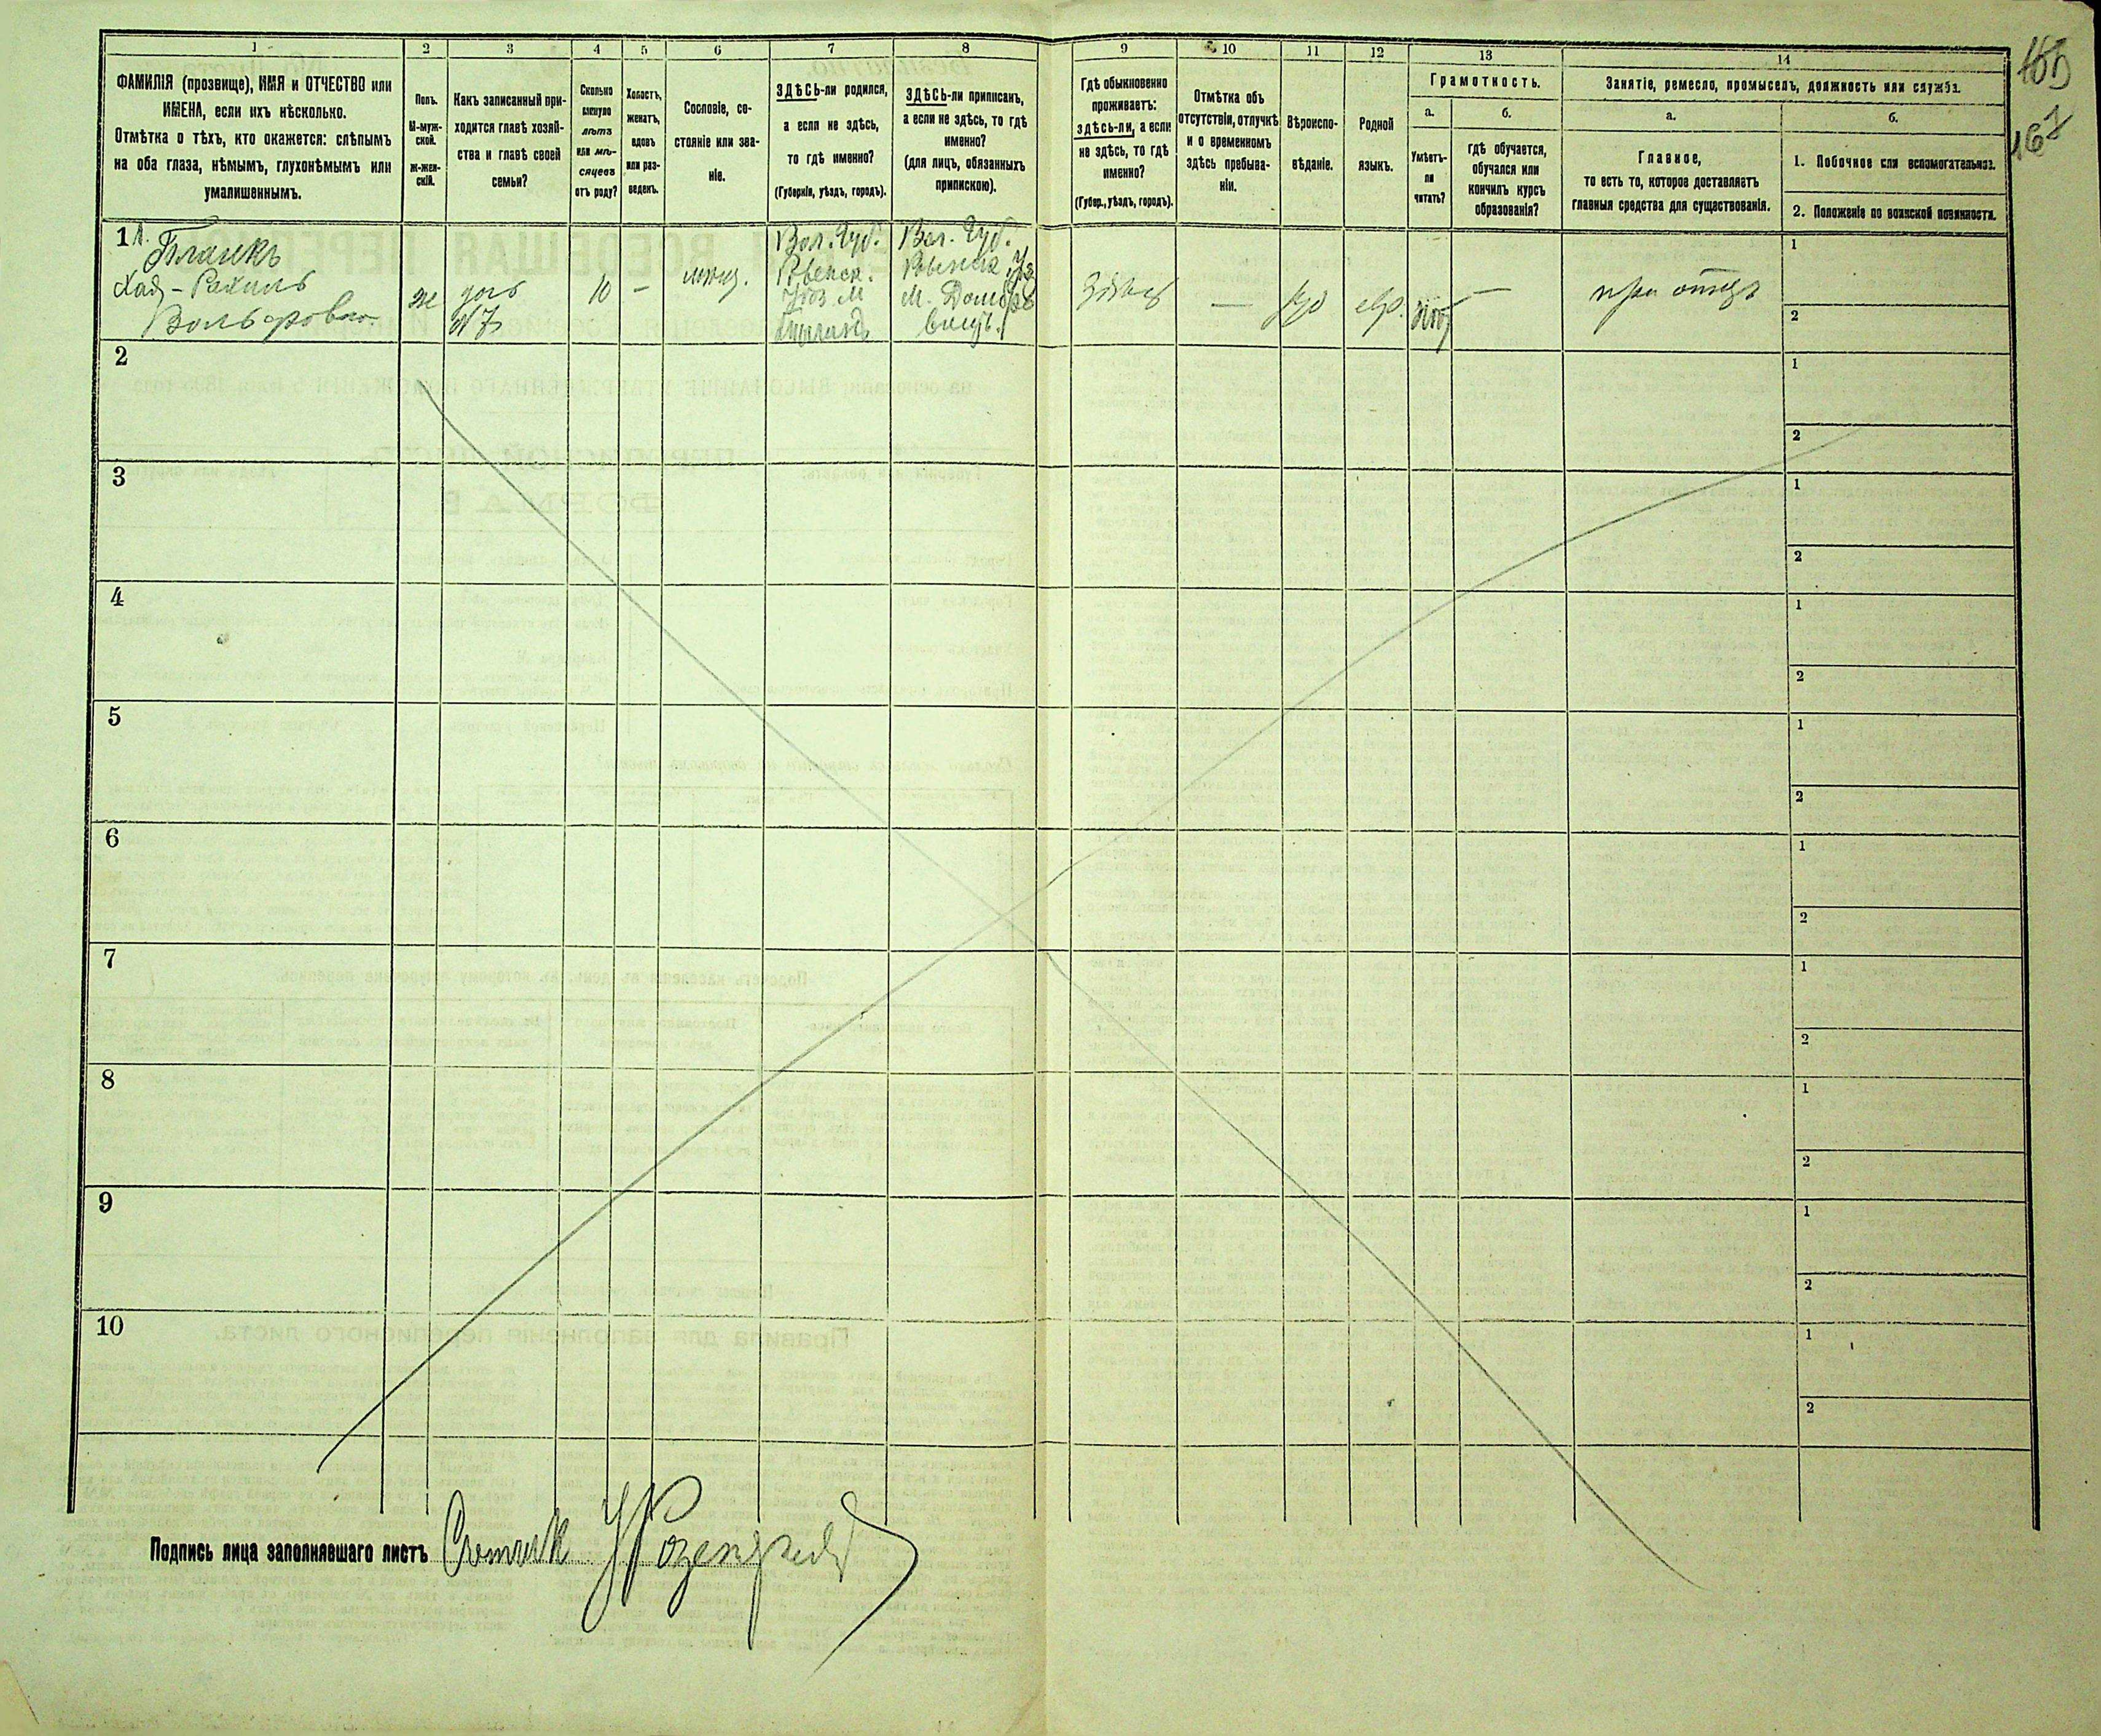 1 2 3 4 5 6 7 8 9 10 11 12 13 14
ФАМИЛІЯ (прозвище), ИМЯ и ОТЧЕСТВО или
ИМЕНА, если ихъ нѣсколько.
Отмѣтка о тѣхъ, кто окажется: слѣпымъ
на оба глаза, нѣмымъ, глухонѣмымъ или
умалишеннымъ.
Полъ.
М-муж-
ской.
Ж-жен-
скій.
Какъ записанный при-
ходится главѣ хозяй-
ства и главѣ своей
семьи?
Сколько
минуло
лѣтъ
или мѣ-
сяцевъ
отъ роду?
Холостъ,
женатъ,
вдовъ
или раз-
веденъ.
Сословіе, со-
стояніе или зва-
ніе.
ЗДѢСЬ-ли родился,
а если не здѣсь,
то гдѣ именно?
(Губернія, уѣздъ, городъ).
ЗДѢСЬ-ли приписанъ,
а если не здѣсь, то гдѣ
именно?
(для лицъ, обязанныхъ
припискою).
Гдѣ обыкновенно
проживаетъ:
здѣсь-ли, а если
не здѣсь, то гдѣ
именно?
(Губер., уѣздъ, городъ).
Отмѣтка объ
отсутствіи, отлучкѣ
и о временномъ
здѣсь пребыва-
ніи.
Вѣроиспо-
вѣданіе.
Родной
языкъ.
Грамотность.
а.
Умѣетъ-
ли
читать?
б.
гдѣ обучается,
обучался или
кончилъ курсъ
образованія?
Занятіе, ремесло, промыселъ, должность или служба.
а.
Главное,
то есть то, которое доставляетъ
главныя средства для существованія.
б.
1. Побочное или вспомогательное.
2. Положеніе по воинской повинности.
165
167
1
Планкъ
Рахиль
Вольфовна
ж
дочь
№ 7
10
—
мѣщ.
Вол. Губ.
Ровенск.
Уѣз. М
Вол. Губ.
Ровенск Уѣз
М. Домбро
виц.
Здѣсь
—
евр.
—
при отцѣ
1
2
2
1
2
3
1
2
4
1
2
5
1
2
6
1
2
7
1
2
8
1
2
9
1
2
10
1
2
Подпись лица заполнявшаго листъ Счетчик